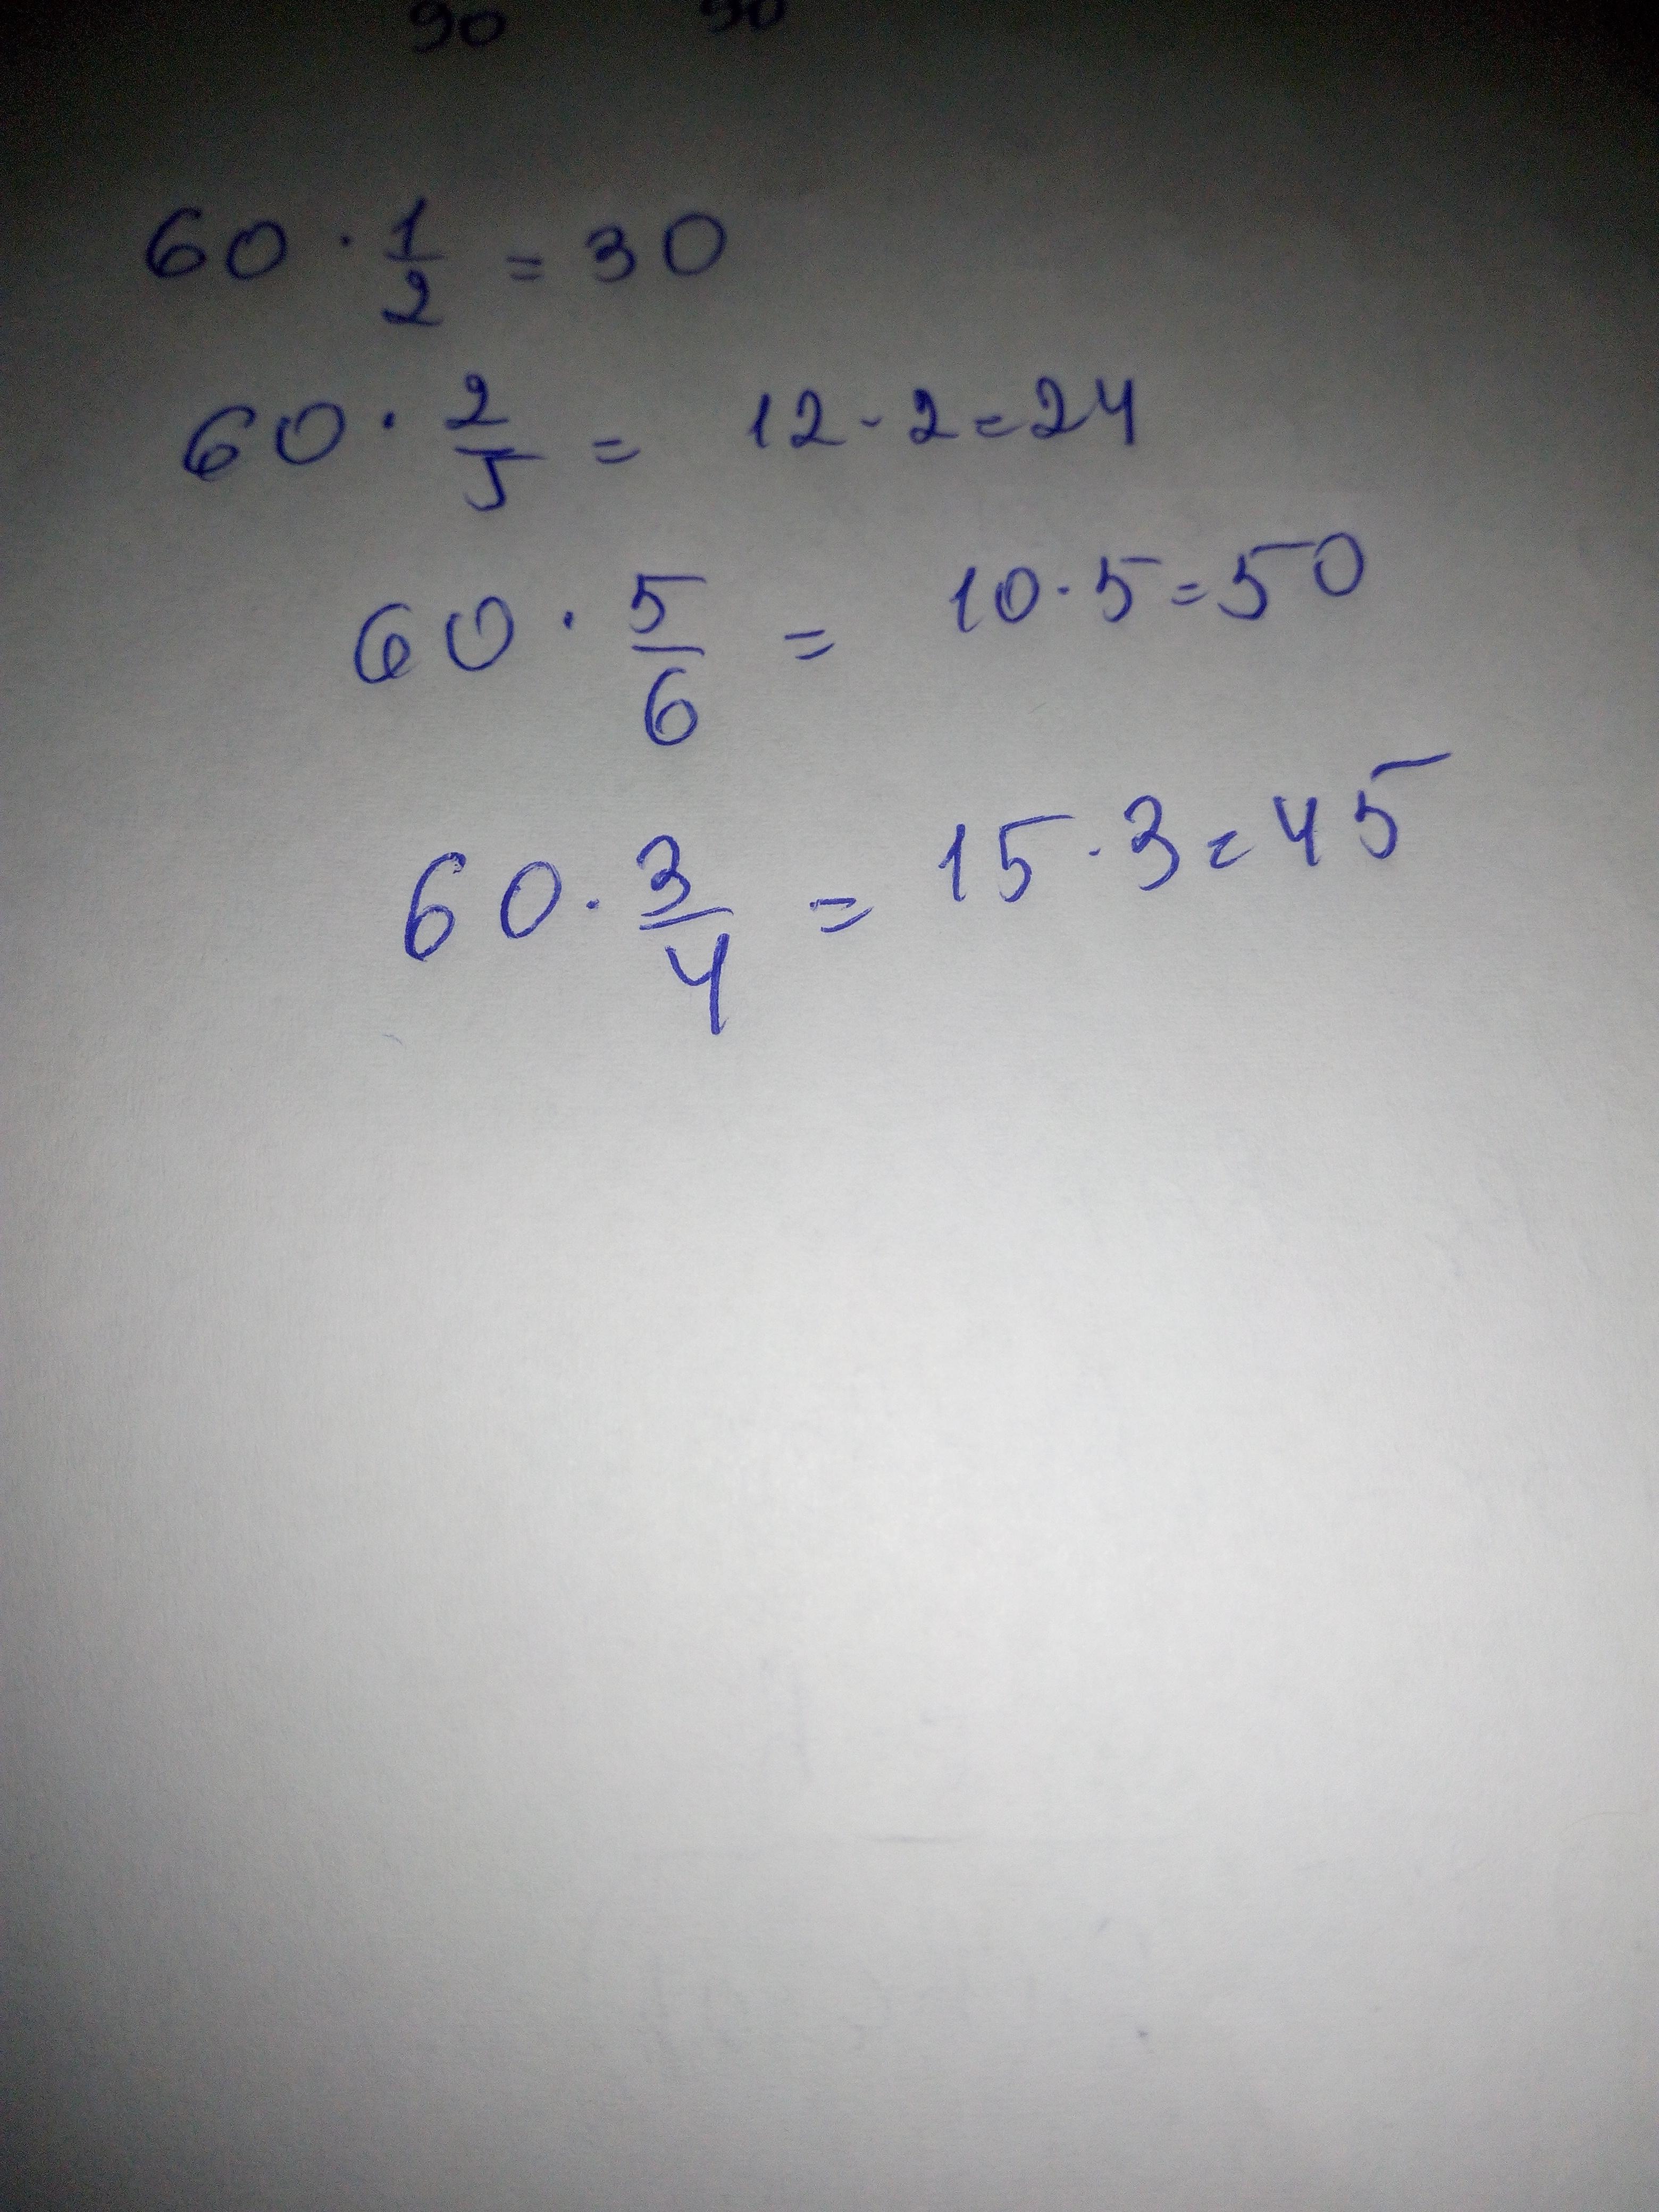 90 90
60 · 1/2 = 30
60 · 2/5 = 12 · 2 = 24
60 · 5/6 = 10 · 5 = 50
60 · 3/4 = 15 · 3 = 45